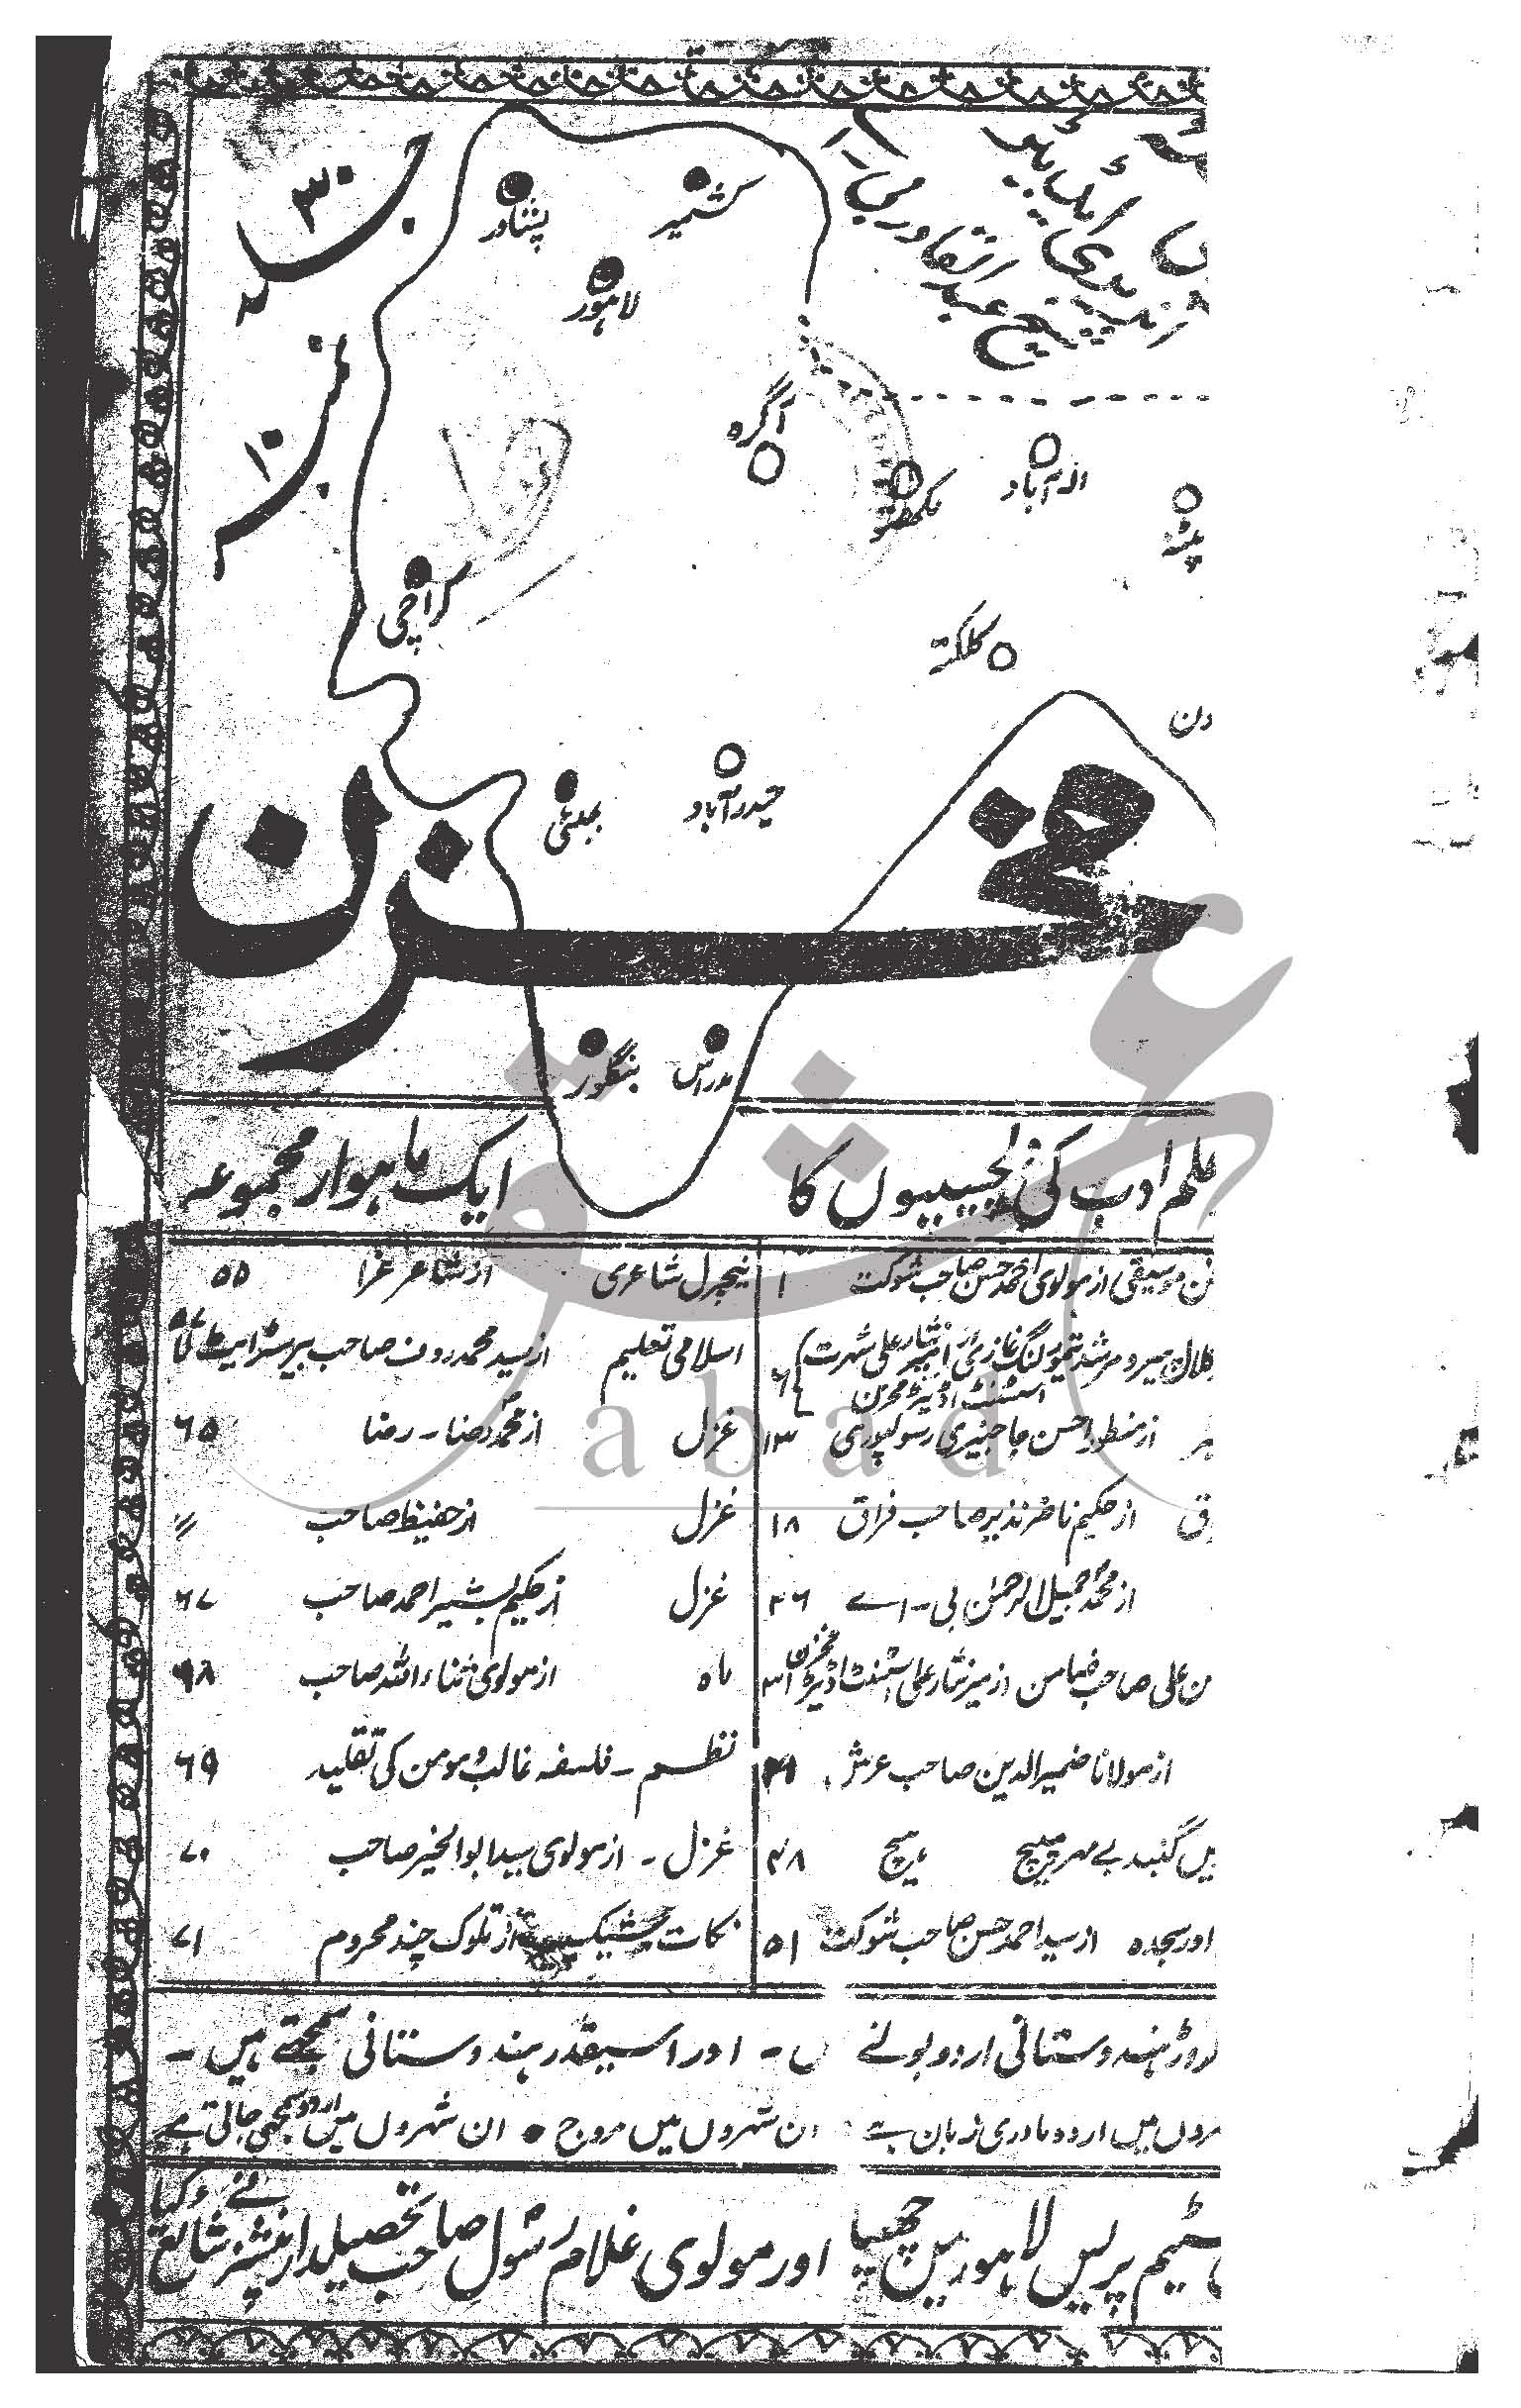 جلد ۳۰
نمبر ۱۰
شیخ عبدالقادر
پشاور
کشمیر
لاہور
آگرہ
لکھنؤ
الہ آباد
پٹنہ
کراچی
کلکتہ
بمبئی
حیدرآباد
مخزن
بنگلور
مدراس
علم ادب کی دلچسپیوں کا ایک ماہوار مجموعہ
فن موسیقی از مولوی احمد حسن صاحب شوکت ۱
اسسٹنٹ اڈیٹر مخزن ۶
از منظور احسن جاجنیری رسولپوری ۱۳
از حکیم ناصر نذیر صاحب فراق ۱۸
از محمد جمیل الرحمٰن بی۔اے ۲۶
ن علی صاحب ضامن از میر نثار علی اسسٹنٹ اڈیٹر مخزن ۳۱
از مولانا ضمیر الدین صاحب عرش ۴۱
یں گنبد بے مہر ہیچ ہیچ ۴۸
اور سجدہ از سید احمد حسن صاحب شوکت ۵۱
نیچرل شاعری از شاعر غرا ۵۵
اسلامی تعلیم از سید محمد رؤف صاحب بیرسٹر ایٹ لا
غزل از محمد رضا۔ رضا ۶۵
غزل از حفیظ صاحب 〃
غزل از حکیم بشیر احمد صاحب ۶۷
ماہ از مولوی ثناء اللہ صاحب ۶۸
نظم ۔ فلسفہ غالب و مومن کی تقلید ۶۹
غزل ۔ از مولوی سید ابوالخیر صاحب ۷۰
نکات از تلوک چند محروم ۷۱
روڑ ہندوستانی اردو بولتے ں ۔ اور اسیقدر ہندوستانی سمجھتے ہیں ۔
ہروں میں اردو مادری زبان ہے ان شہروں میں مروج ● ان شہروں میں اردو سمجھی جاتی ہے
سٹیم پریس لاہور میں چھپا اور مولوی غلام رسول صاحب تحصیلدار پنشنر نے شائع کیا
abad